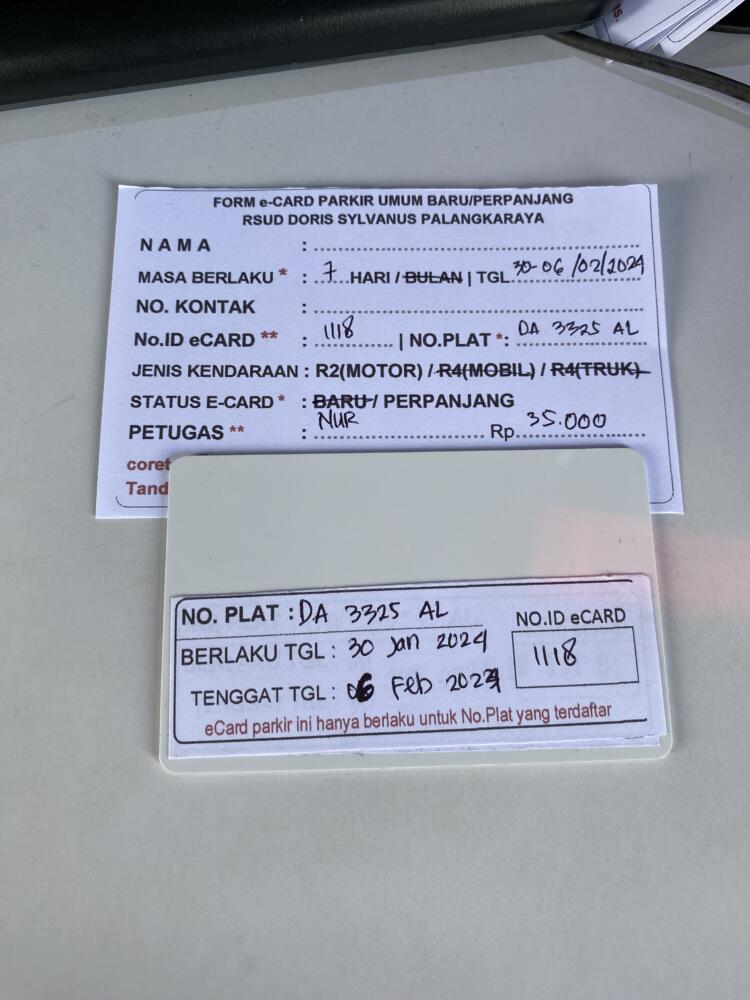 FORM e-CARD PARKIR UMUM BARU/PERPANJANG
RSUD DORIS SYLVANUS PALANGKARAYA
NAMA :
MASA BERLAKU * : 7 HARI / BULAN | TGL 30-06/02/2024
NO. KONTAK :
No.ID eCARD ** : 1118 | NO.PLAT *: DA 3325 AL
JENIS KENDARAAN : R2(MOTOR) / R4(MOBIL) / R4(TRUK)
STATUS E-CARD * : BARU / PERPANJANG
PETUGAS ** : NUR Rp. 35.000
coret
Tand
NO. PLAT : DA 3325 AL
NO.ID eCARD
BERLAKU TGL : 30 Jan 2024
1118
TENGGAT TGL : 06 Feb 2024
eCard parkir ini hanya berlaku untuk No.Plat yang terdaftar